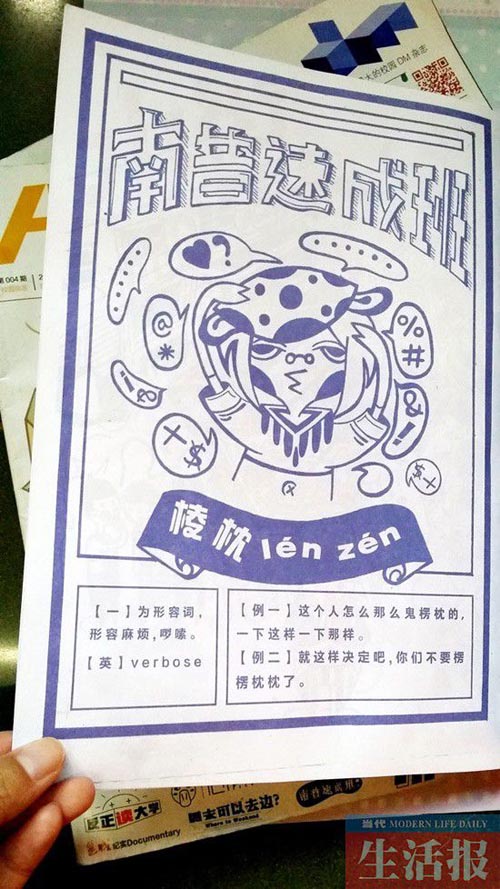 大的校园 DM 杂志
南普速成班
第 004 期
♥?
......
@
*
%
#
!&
&!
+$
+$
棱枕 lén zén
【一】为形容词,
形容麻烦,啰嗦。
【英】verbose
【例一】这个人怎么那么鬼楞枕的,
一下这样一下那样。
【例二】就这样决定吧,你们不要楞
楞枕枕了。
反正读大学
周末可以去边?
Where to Weekend
南普速成班
纪实Documentary
当代 MODERN LIFE DAILY
生活报